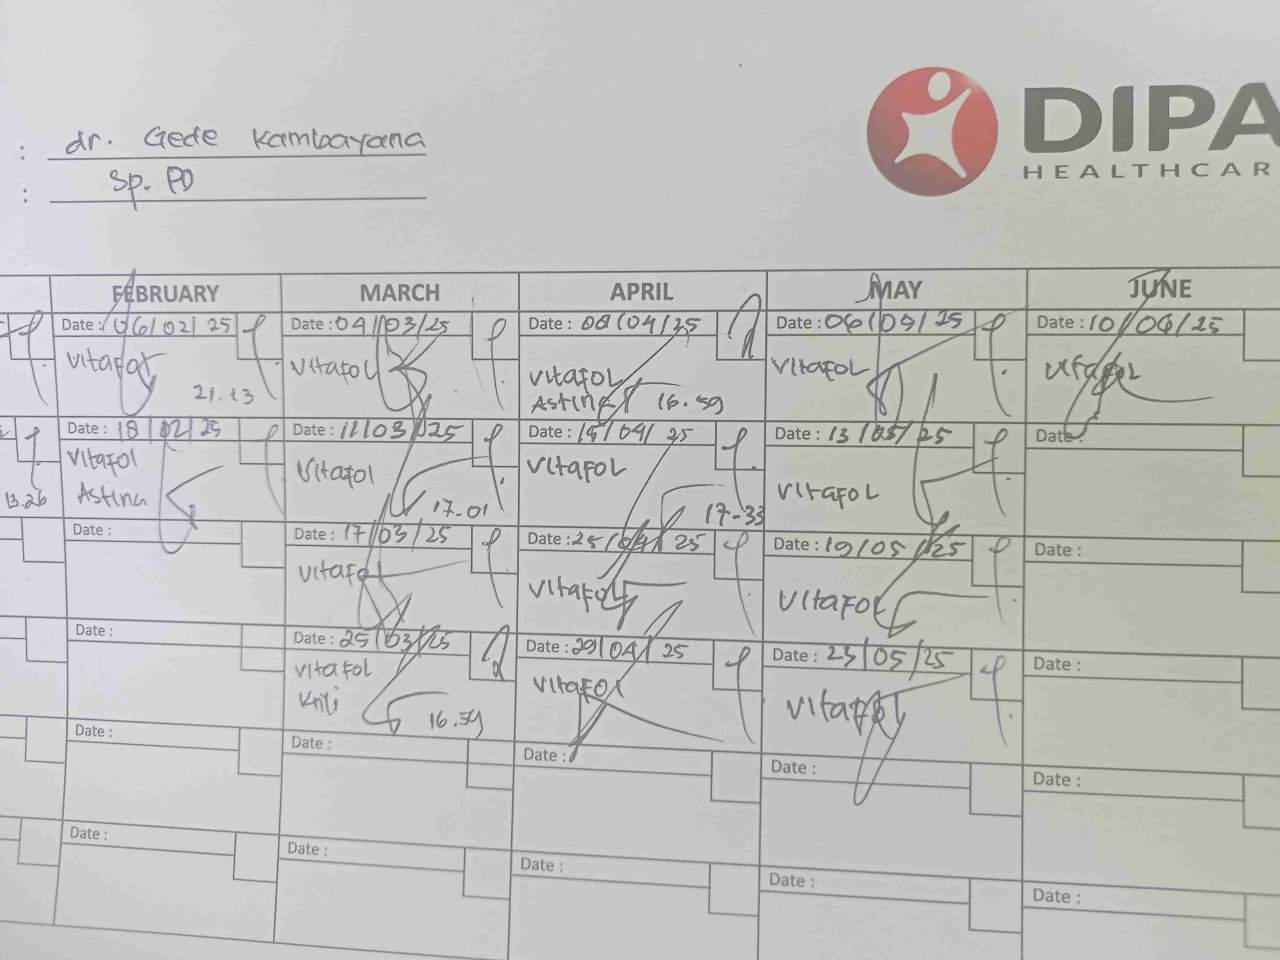 : dr. Gede Kambayana
: Sp. PD
DIPA
HEALTHCAR
FEBRUARY MARCH APRIL MAY JUNE
Date : 06/02/25 Date : 04/03/25 Date : 08/04/25 Date : 06/05/25 Date : 10/06/25
Vitafol Vitafol Vitafol Vitafol Vitafol
21.23 Astina 16.59
Date : 18/02/25 Date : 11/03/25 Date : 15/04/25 Date : 13/05/25 Date :
Vitafol Vitafol Vitafol Vitafol
13.26 Astina 17-01 17-33
Date : Date : 17/03/25 Date : 25/04/25 Date : 19/05/25 Date :
Vitafol Vitafol Vitafol
Date : Date : 25/03/25 Date : 29/04/25 Date : 23/05/25 Date :
Vitafol Vitafol Vitafol
16.59
Date : Date : Date : Date : Date :
Date : Date : Date : Date : Date :